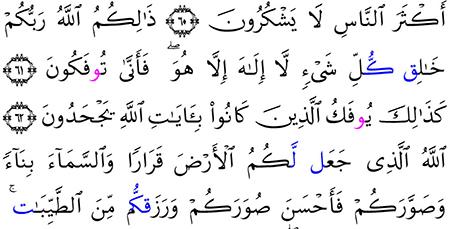 أَكْثَرَ ٱلنَّاسِ لَا يَشْكُرُونَ ۝٦٠ ذَٰلِكُمُ ٱللَّهُ رَبُّكُمْ
خَٰلِق كُّلِّ شَىْءٍ لَّا إِلَٰهَ إِلَّا هُوَ ۖ فَأَنَّىٰ تُوفَكُونَ ۝٦١
كَذَٰلِكَ يُوفَكُ ٱلَّذِينَ كَانُوا۟ بِـَٔايَٰتِ ٱللَّهِ يَجْحَدُونَ ۝٦٢
ٱللَّهُ ٱلَّذِى جَعَل لَّكُمُ ٱلْأَرْضَ قَرَارًا وَٱلسَّمَآءَ بِنَآءً
وَصَوَّرَكُمْ فَأَحْسَنَ صُوَرَكُمْ وَرَزَقكُّم مِّنَ ٱلطَّيِّبَٰت ۚ